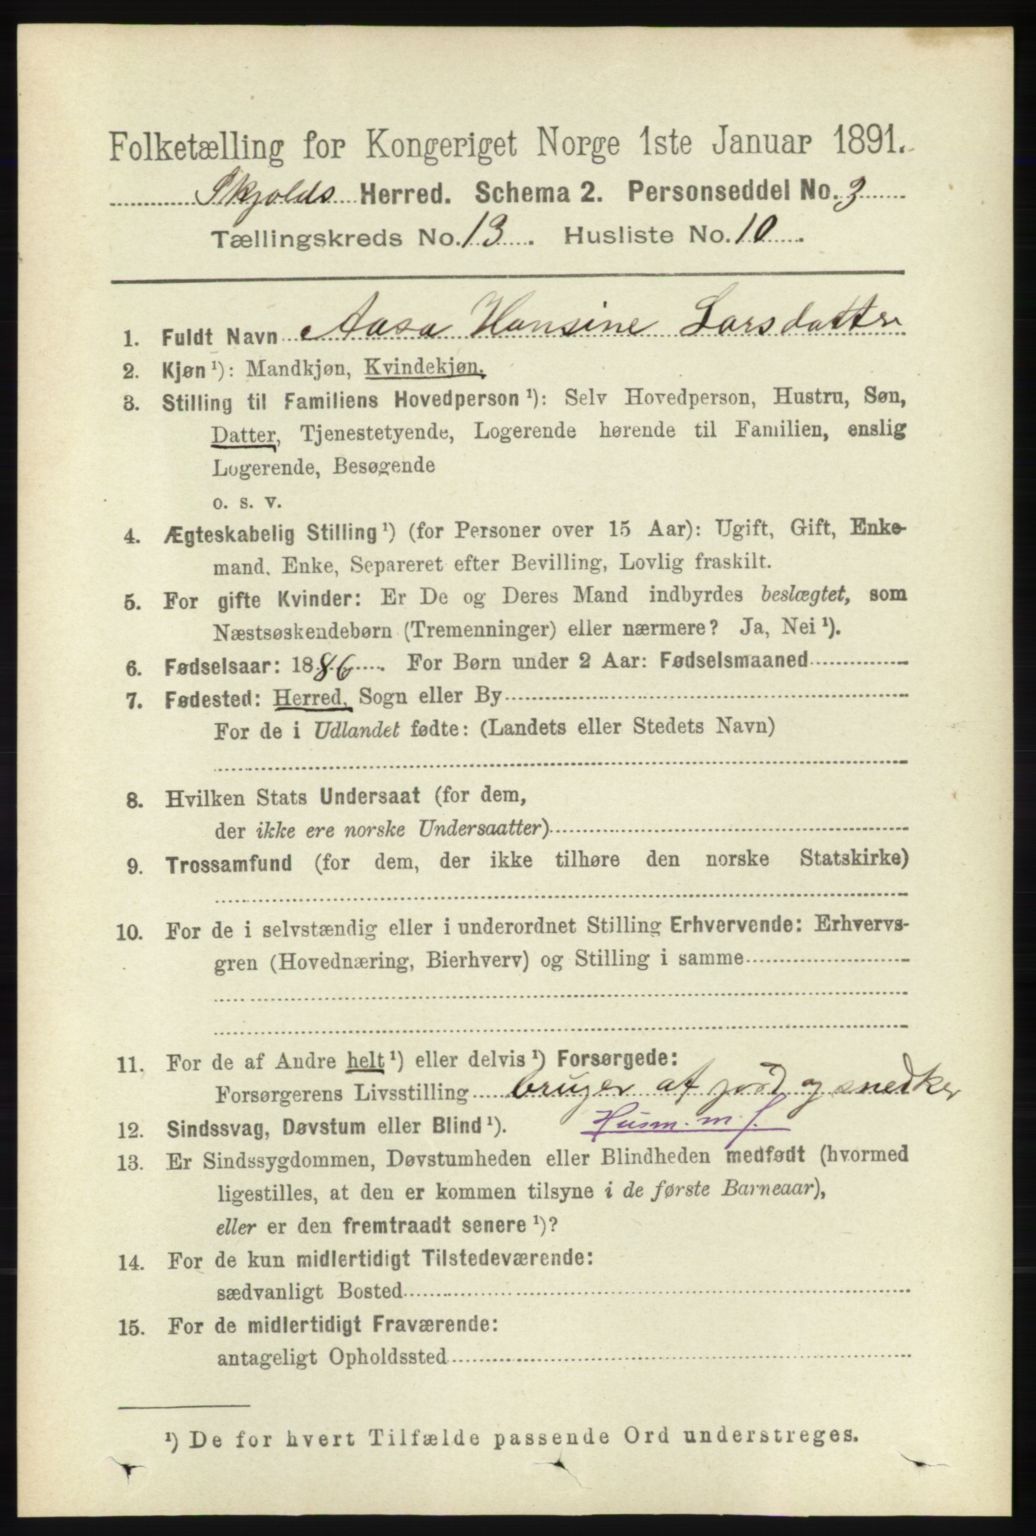 Folketælling for Kongeriget Norge 1ste Januar 1891.
Skjolds Herred. Schema 2. Personseddel No. 3
Tællingskreds No. 13. Husliste No. 10.
1. Fuldt Navn Aasa Hansine Larsdatter
2. Kjøn ¹): Mandkjøn, Kvindekjøn.
3. Stilling til Familiens Hovedperson ¹): Selv Hovedperson, Hustru, Søn,
Datter, Tjenestetyende, Logerende hørende til Familien, enslig
Logerende, Besøgende
o. s. v.
4. Ægteskabelig Stilling ¹) (for Personer over 15 Aar): Ugift, Gift, Enke-
mand, Enke, Separeret efter Bevilling, Lovlig fraskilt.
5. For gifte Kvinder: Er De og Deres Mand indbyrdes beslægtet, som
Næstsøskendebørn (Tremenninger) eller nærmere? Ja, Nei ¹).
6. Fødselsaar: 1886. For Børn under 2 Aar: Fødselsmaaned
7. Fødested: Herred, Sogn eller By
For de i Udlandet fødte: (Landets eller Stedets Navn)
8. Hvilken Stats Undersaat (for dem,
der ikke ere norske Undersaatter)
9. Trossamfund (for dem, der ikke tilhøre den norske Statskirke)
10. For de i selvstændig eller i underordnet Stilling Erhvervende: Erhvervs-
gren (Hovednæring, Bierhverv) og Stilling i samme
11. For de af Andre helt ¹) eller delvis ¹) Forsørgede:
Forsørgerens Livsstilling bruger af jord og snedker
12. Sindssvag, Døvstum eller Blind ¹). Husm. m. j.
13. Er Sindssygdommen, Døvstumheden eller Blindheden medfødt (hvormed
ligestilles, at den er kommen tilsyne i de første Barneaar),
eller er den fremtraadt senere ¹)?
14. For de kun midlertidigt Tilstedeværende:
sædvanligt Bosted
15. For de midlertidigt Fraværende:
antageligt Opholdssted
¹) De for hvert Tilfælde passende Ord understreges.